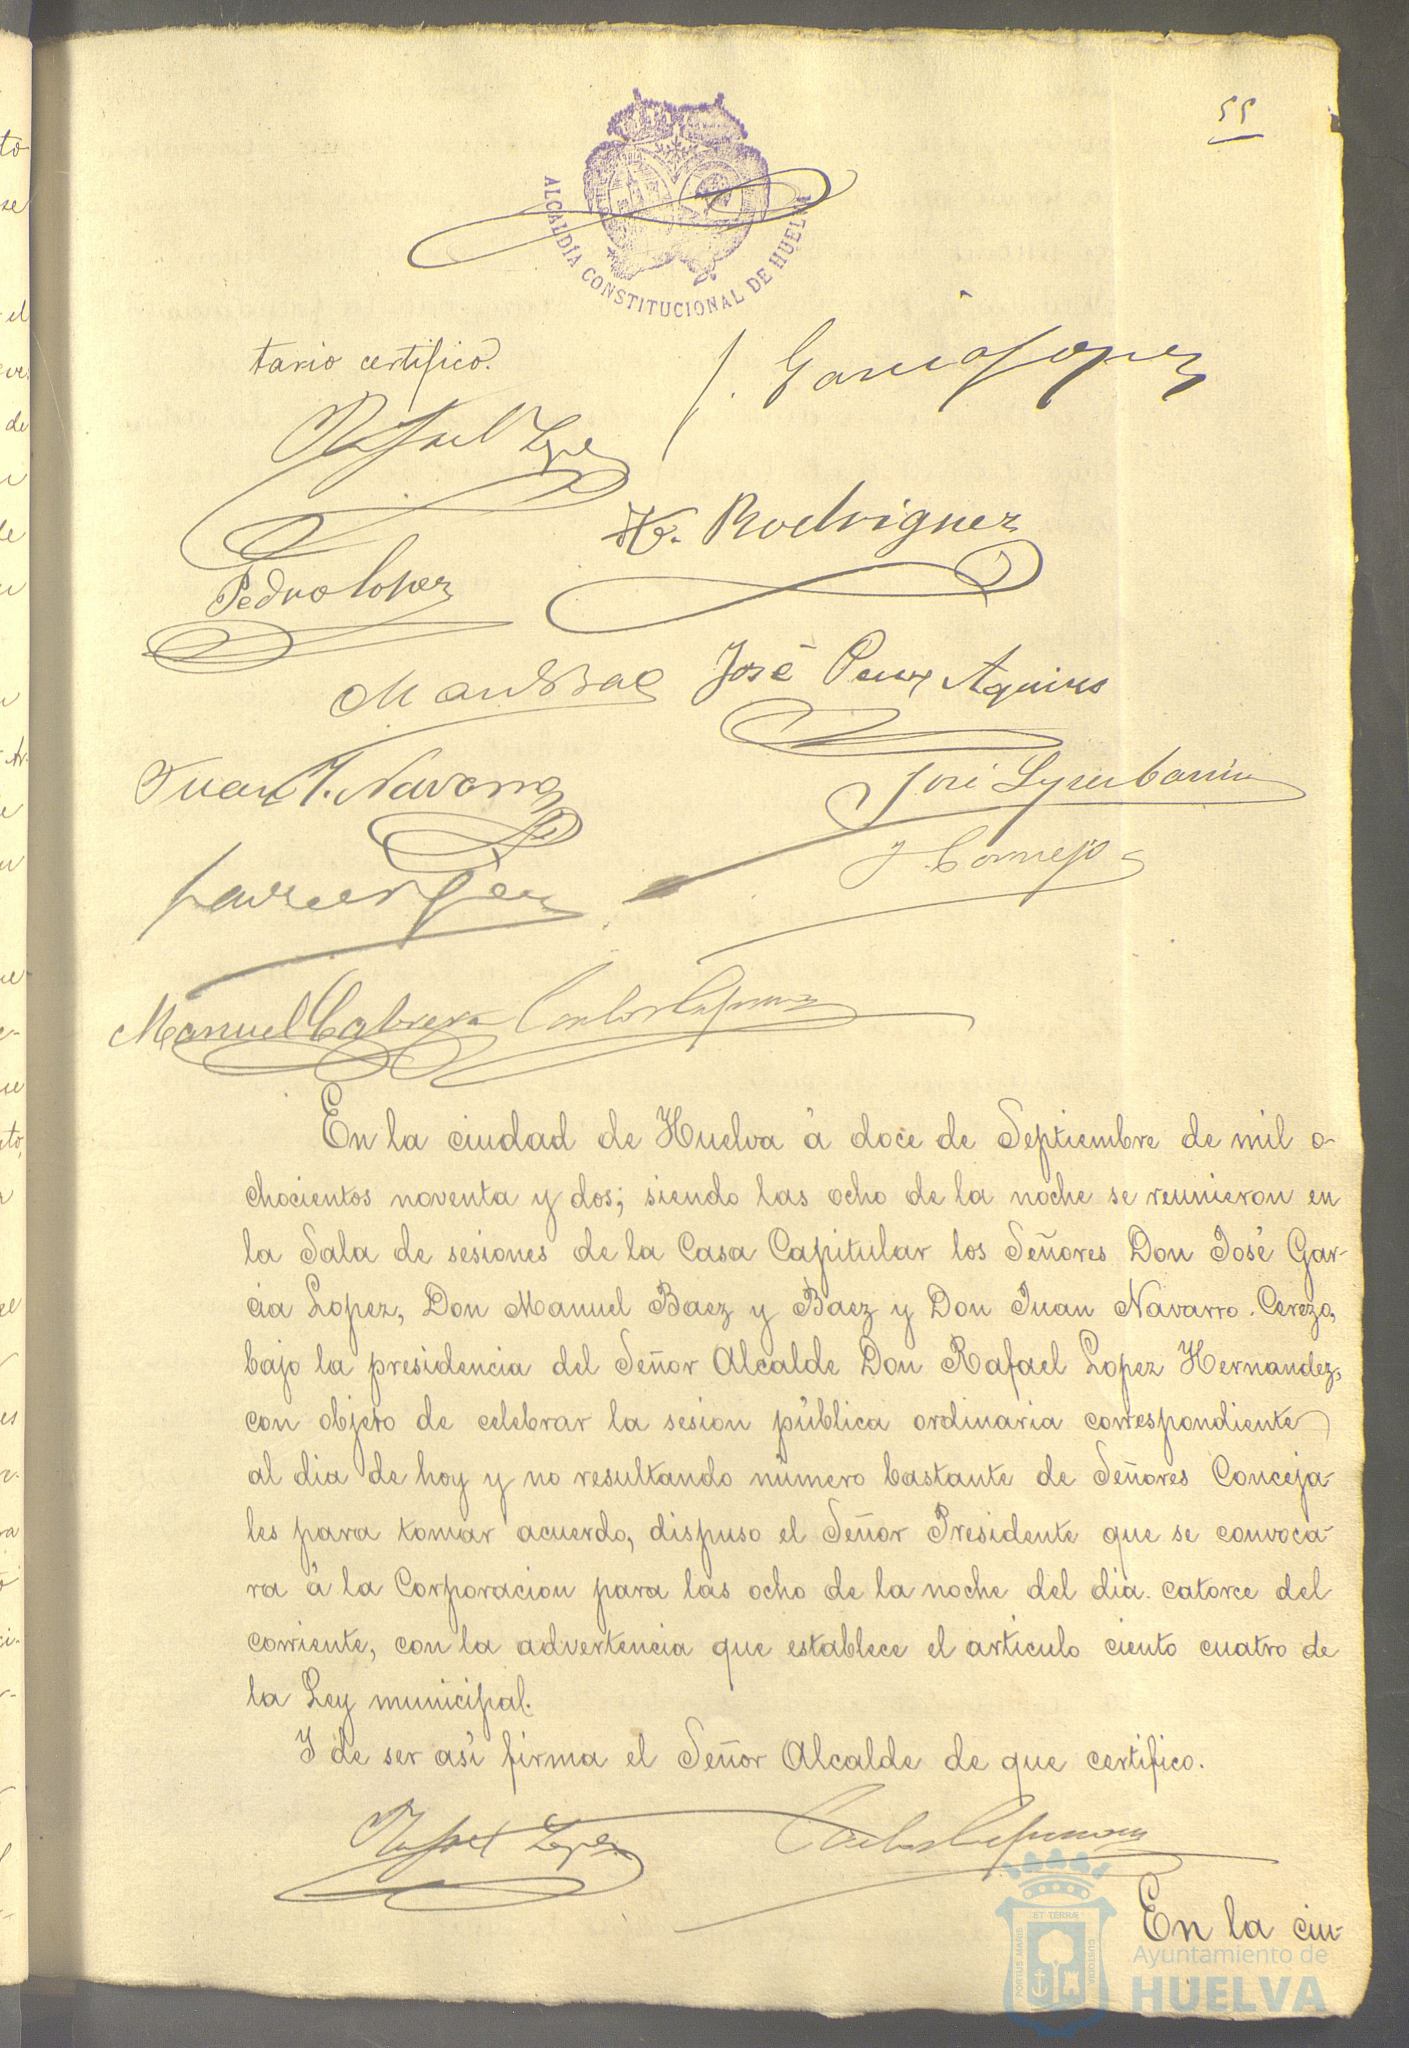 55
ALCALDÍA CONSTITUCIONAL DE HUELVA
tario certifico.
J. Garcia Lopez
Rafael Lopez
H. Rodriguez
Pedro Lopez
Man Baez
José Perez Aguirre
Juan J. Navarro
José Lopez Barrios
J Cornejo
Manuel Cabrera
En la ciudad de Huelva á doce de Septiembre de mil o-
chocientos noventa y dos; siendo las ocho de la noche se reunieron en
la Sala de sesiones de la Casa Capitular los Señores Don José Gar-
cia Lopez, Don Manuel Baez y Baez y Don Juan Navarro Cerezo,
bajo la presidencia del Señor Alcalde Don Rafael Lopez Hernandez,
con objeto de celebrar la sesion pública ordinaria correspondiente
al dia de hoy y no resultando número bastante de Señores Conceja-
les para tomar acuerdo, dispuso el Señor Presidente que se convoca-
ra á la Corporacion para las ocho de la noche del dia catorce del
corriente, con la advertencia que establece el artículo ciento cuatro de
la Ley municipal.
Y de ser así firma el Señor Alcalde de que certifico.
Rafael Lopez
En la ciu-
PORTUS MARIS ET TERRÆ CUSTODIA
Ayuntamiento de
HUELVA